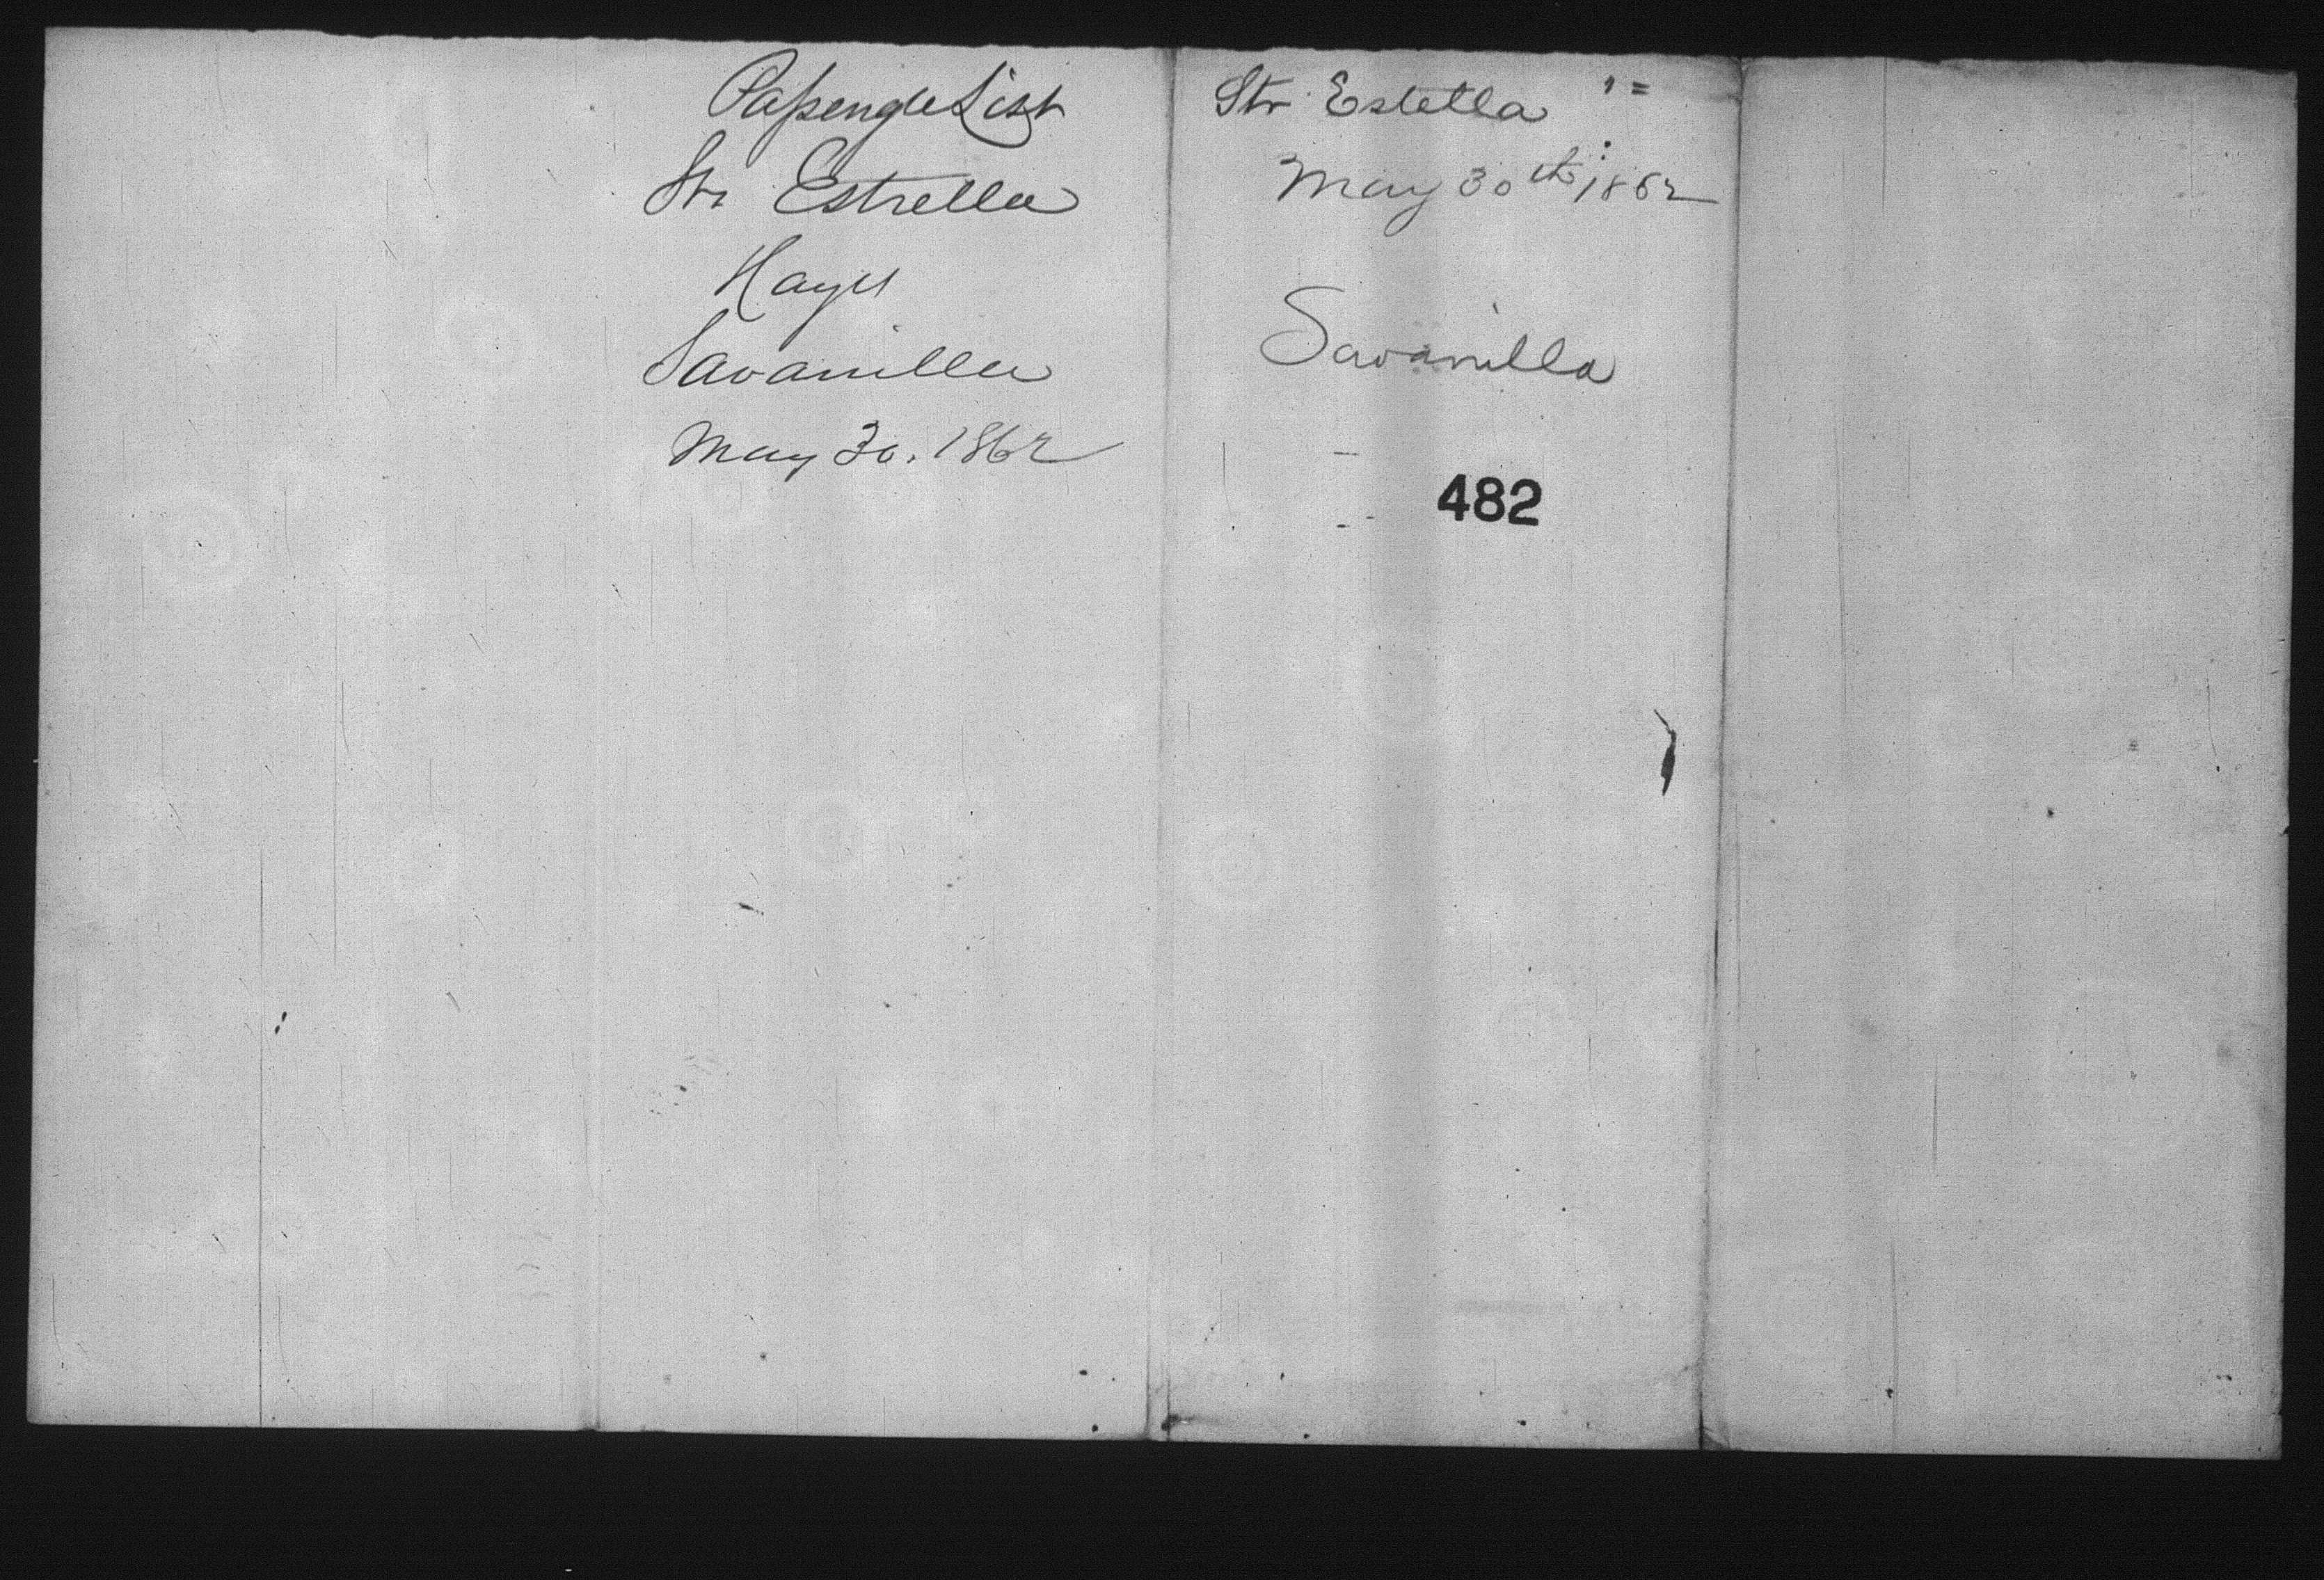 Passenger List
Str Estrella
Hayes
Savanilla
May 30. 1862
Str Estella
May 30th 1862
Savanilla
482